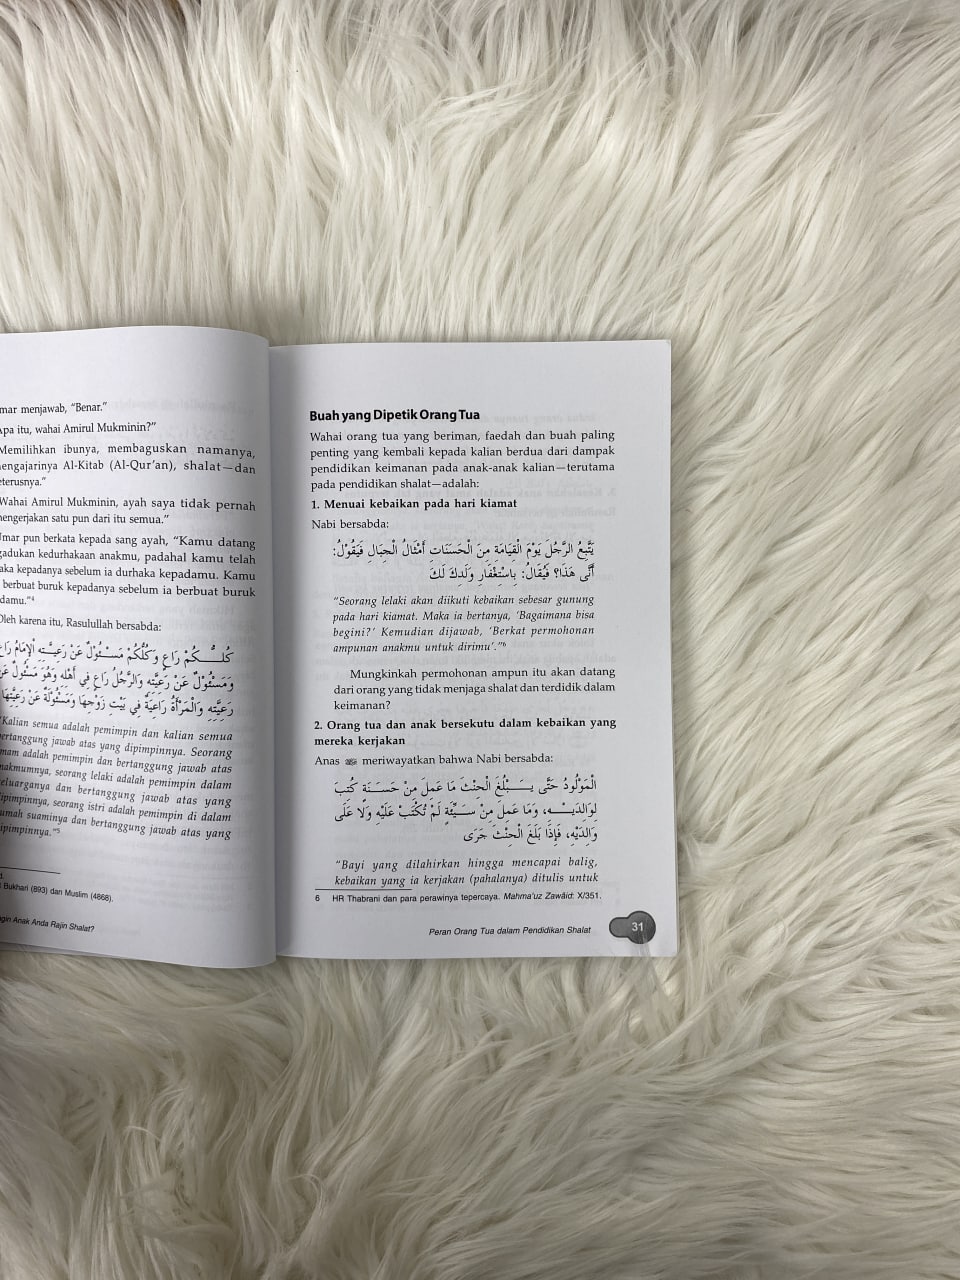 menjawab, “Benar.”
itu, wahai Amirul Mukminin?”
Memilihkan ibunya, membaguskan namanya,
Al-Kitab (Al-Qur’an), shalat—dan
Wahai Amirul Mukminin, ayah saya tidak pernah
satu pun dari itu semua.”
pun berkata kepada sang ayah, “Kamu datang
kedurhakaan anakmu, padahal kamu telah
kepadanya sebelum ia durhaka kepadamu. Kamu
berbuat buruk kepadanya sebelum ia berbuat buruk
⁴
Oleh karena itu, Rasulullah bersabda:
كُلُّكُمْ رَاعٍ وَكُلُّكُمْ مَسْئُولٌ عَنْ رَعِيَّتِهِ الْإِمَامُ رَاعٍ
وَمَسْئُولٌ عَنْ رَعِيَّتِهِ وَالرَّجُلُ رَاعٍ فِي أَهْلِهِ وَهُوَ مَسْئُولٌ عَنْ
رَعِيَّتِهِ وَالْمَرْأَةُ رَاعِيَةٌ فِي بَيْتِ زَوْجِهَا وَمَسْئُولَةٌ عَنْ رَعِيَّتِهَا
“Kalian semua adalah pemimpin dan kalian semua
bertanggung jawab atas yang dipimpinnya. Seorang
adalah pemimpin dan bertanggung jawab atas
makmumnya, seorang lelaki adalah pemimpin dalam
keluarganya dan bertanggung jawab atas yang
dipimpinnya, seorang istri adalah pemimpin di dalam
rumah suaminya dan bertanggung jawab atas yang
dipimpinnya.”⁵
Bukhari (893) dan Muslim (4868).
Anak Anda Rajin Shalat?
Buah yang Dipetik Orang Tua
Wahai orang tua yang beriman, faedah dan buah paling
penting yang kembali kepada kalian berdua dari dampak
pendidikan keimanan pada anak-anak kalian—terutama
pada pendidikan shalat—adalah:
1. Menuai kebaikan pada hari kiamat
Nabi bersabda:
يَتْبَعُ الرَّجُلَ يَوْمَ الْقِيَامَةِ مِنَ الْحَسَنَاتِ أَمْثَالُ الْجِبَالِ فَيَقُوْلُ:
أَنَّى هَذَا؟ فَيُقَالُ: بِاسْتِغْفَارِ وَلَدِكَ لَكَ
“Seorang lelaki akan diikuti kebaikan sebesar gunung
pada hari kiamat. Maka ia bertanya, ‘Bagaimana bisa
begini?’ Kemudian dijawab, ‘Berkat permohonan
ampunan anakmu untuk dirimu’.”⁶
Mungkinkah permohonan ampun itu akan datang
dari orang yang tidak menjaga shalat dan terdidik dalam
keimanan?
2. Orang tua dan anak bersekutu dalam kebaikan yang
mereka kerjakan
Anas meriwayatkan bahwa Nabi bersabda:
الْمَوْلُودُ حَتَّى يَبْلُغَ الْحِنْثَ مَا عَمِلَ مِنْ حَسَنَةٍ كُتِبَ
لِوَالِدَيْهِ، وَمَا عَمِلَ مِنْ سَيِّئَةٍ لَمْ تُكْتَبْ عَلَيْهِ وَلَا عَلَى
وَالِدَيْهِ، فَإِذَا بَلَغَ الْحِنْثَ جَرَى
“Bayi yang dilahirkan hingga mencapai balig,
kebaikan yang ia kerjakan (pahalanya) ditulis untuk
6 HR Thabrani dan para perawinya tepercaya. Mahma’uz Zawâid: X/351.
Peran Orang Tua dalam Pendidikan Shalat
31